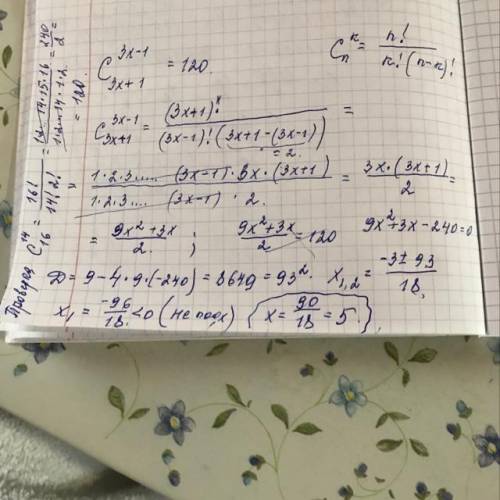 C_{3x+1}^{3x-1} = 120.
C_n^k = n! / k!(n-k)!
C_{3x+1}^{3x-1} = (3x+1)! / (3x-1)!(3x+1-(3x-1)) =
= 2.
= 1·2·3.... (3x-1)·3x·(3x+1) / 1·2·3.... (3x-1)·2. = 3x·(3x+1) / 2 =
= 9x²+3x / 2. ; 9x²+3x / 2 = 120 9x²+3x-240=0
D = 9-4·9·(-240) = 8649 = 93². x_{1,2} = -3±93 / 18,
x_1 = -96 / 18 <0 (не подх) x = 90 / 18 = 5.
Проверка C_{16}^{14} = 16! / 14!·2! = 1·2...14·15·16 / 1·2...14·1·2. = 240 / 2 =
= 120.